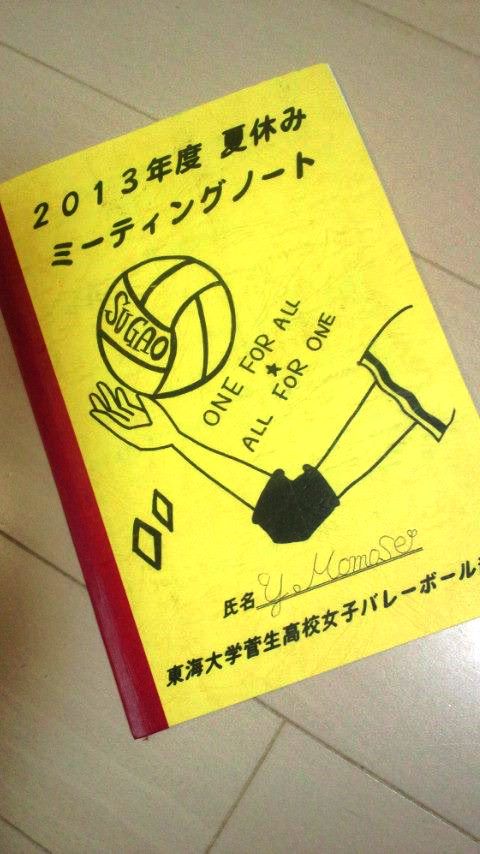 2013年度 夏休み
ミーティングノート
SUGAO
ONE FOR ALL
★
ALL FOR ONE
氏名 Y Momose
東海大学菅生高校女子バレーボール